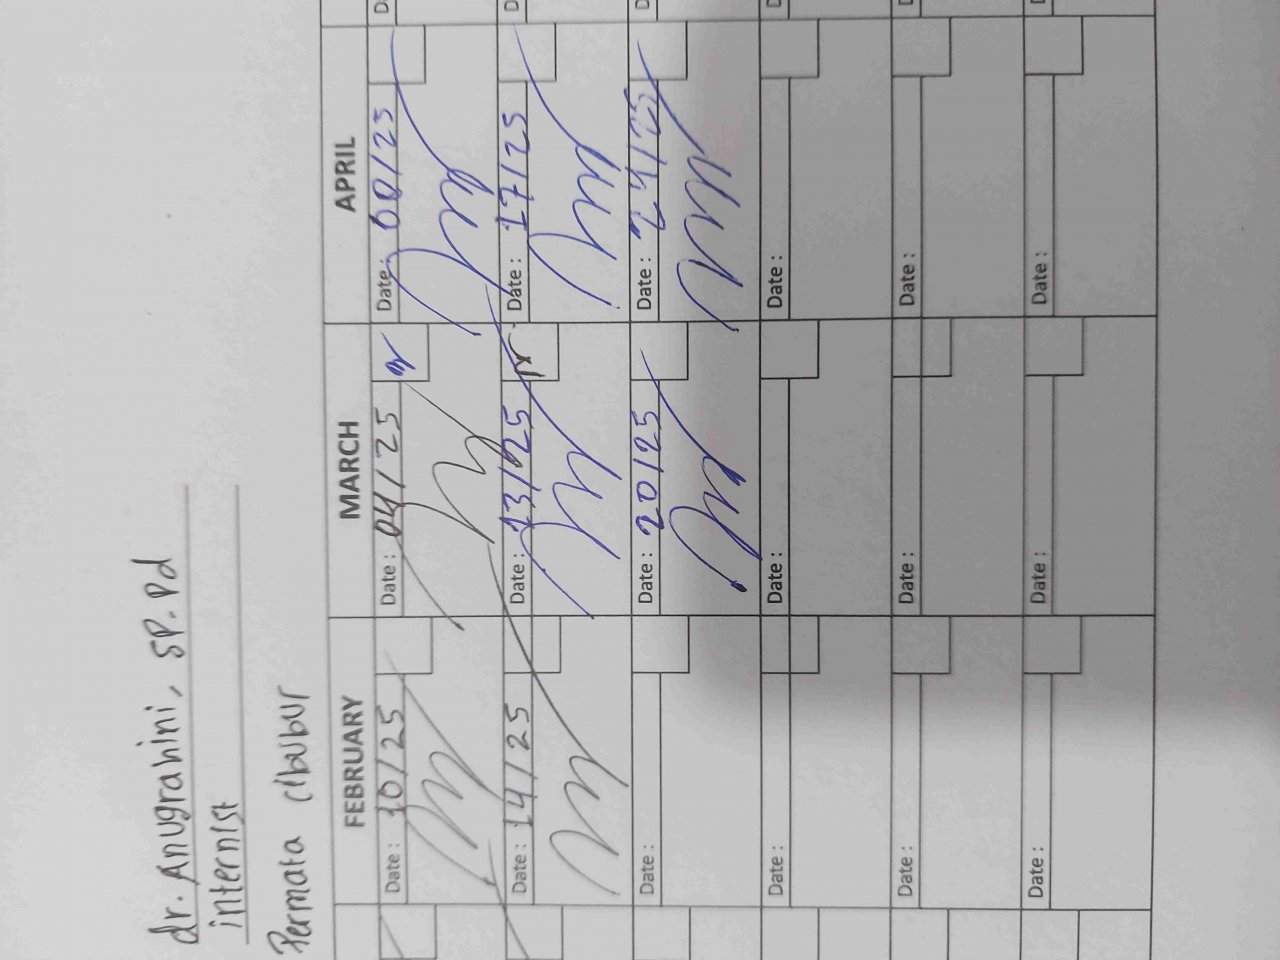 dr. Anugrahini, SP.Pd
internist
Permata cibubur
FEBRUARY MARCH APRIL
Date : 10/25 Date : 04/25 Date : 08/25
Date : 14/25 Date : 13/25 Date : 17/25
Date : Date : 20/25 Date : 24/25
Date : Date : Date :
Date : Date : Date :
Date : Date : Date :